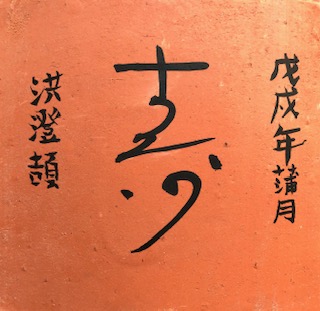 戊戌年蒲月
寿
洪澄頡